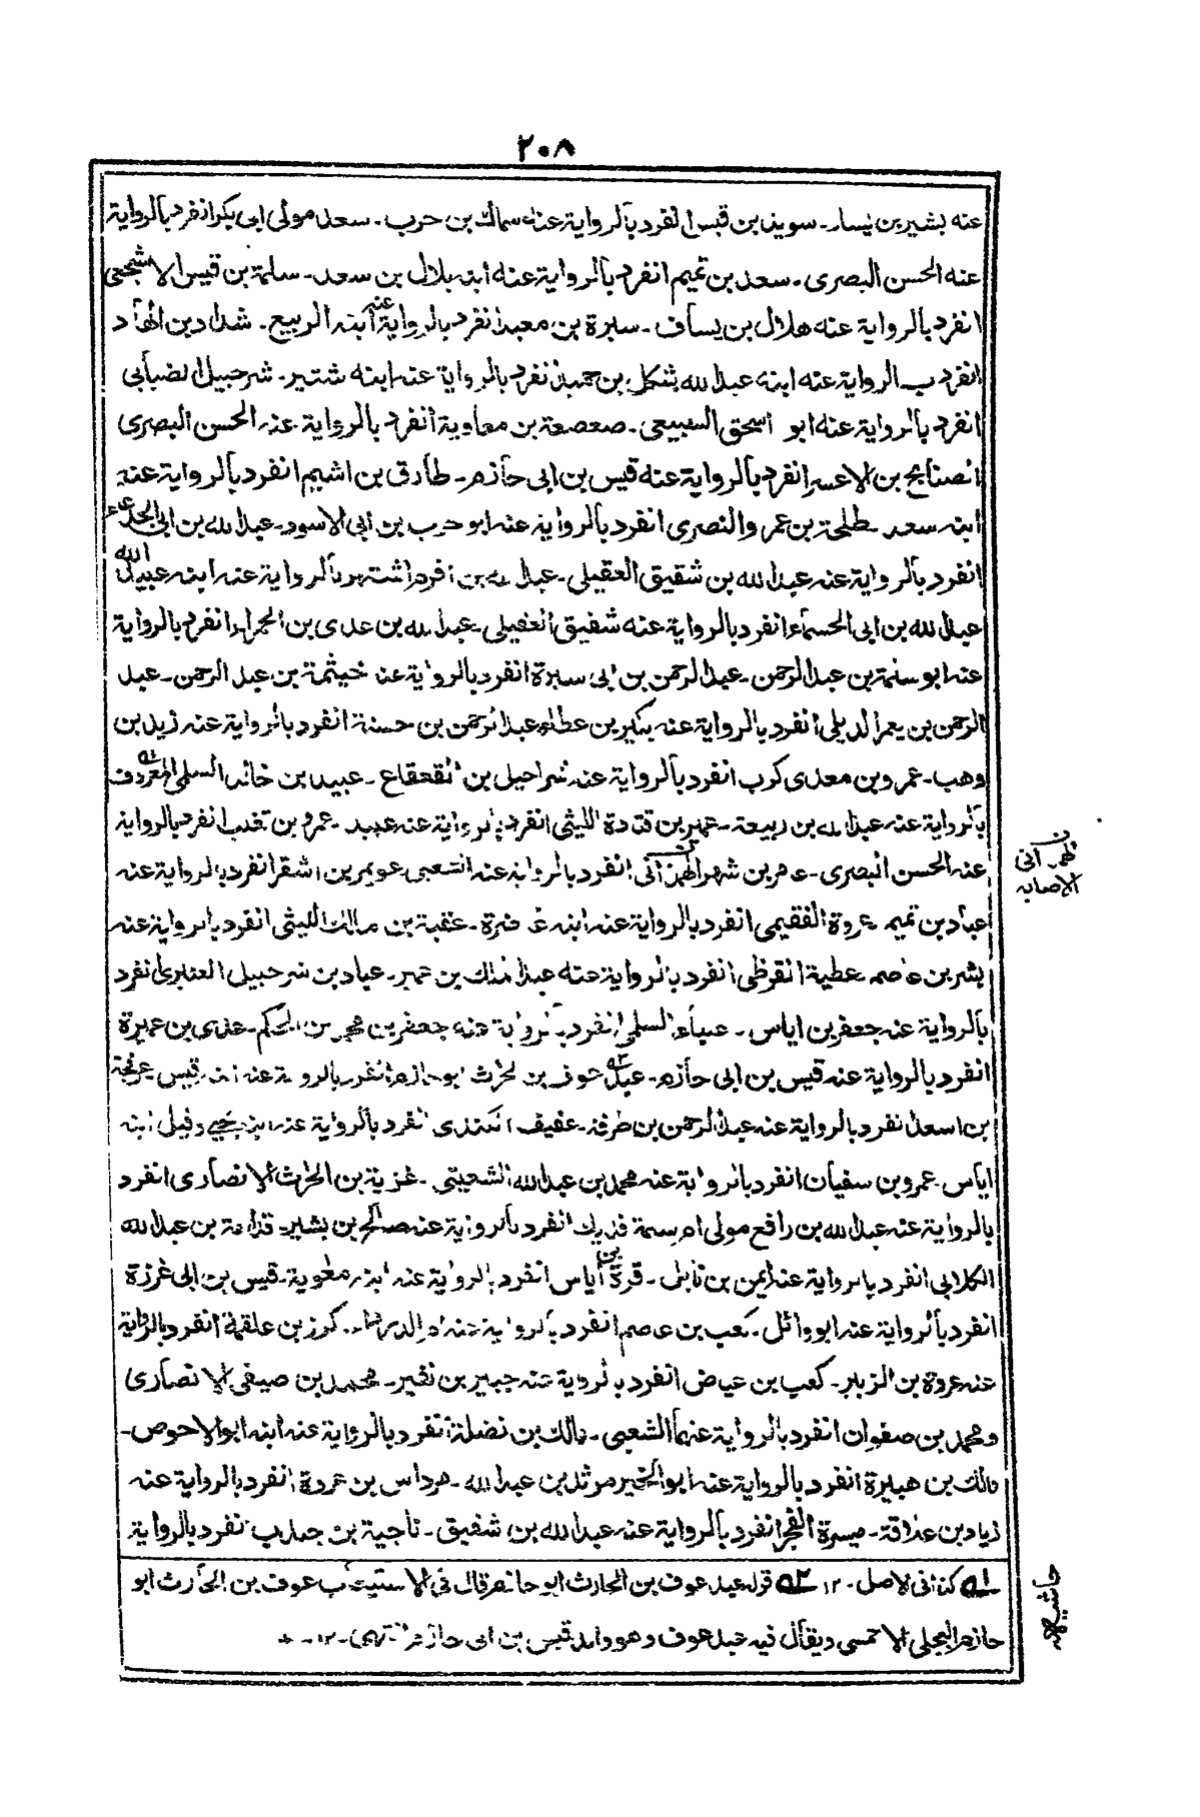 ٢٠٨
عنه بشير بن يسار ـ سويد بن قيس انفرد بالرواية عنه سماك بن حرب ـ سعد مولى ابى بكر انفرد بالرواية
عنه الحسن البصرى ـ سعد بن تميم انفرد بالرواية عنه ابنه بلال بن سعد ـ سلمة بن قيس الاشجعى
انفرد بالرواية عنه هلال بن يساف ـ سبرة بن معبد انفرد بالرواية عنه ابنه الربيع ـ شداد بن الهاد
انفرد ب الرواية عنه ابنه عبد الله شكل بن حميد انفرد بالرواية عنه ابنه شتير ـ شرحبيل الضبابى
انفرد بالرواية عنه ابو اسحق السبيعى ـ صعصعة بن معاوية انفرد بالرواية عنه الحسن البصرى
الصنابح بن الاعسر انفرد بالرواية عنه قيس بن ابى حازم ـ طارق بن اشيم انفرد بالرواية عنه
ابنه سعد ـ طلحة بن عمرو النصرى انفرد بالرواية عنه ابو حرب بن ابى الاسود ـ عبد الله بن ابى الجدعاء
انفرد بالرواية عنه عبد الله بن شقيق العقيلى ـ عبد الله بن اقرم اشتهر بالرواية عنه ابنه عبيد الله
عبد الله بن ابى الحسماء انفرد بالرواية عنه شقيق العقيلى ـ عبد الله بن عدى بن الحمراء انفرد بالرواية
عنه ابو سلمة بن عبد الرحمن ـ عبد الرحمن بن ابى سبرة انفرد بالرواية عنه خيثمة بن عبد الرحمن ـ عبد
الرحمن بن يعمر الديلى انفرد بالرواية عنه بكير بن عطاء عبد الرحمن بن حسنة انفرد بالرواية عنه زيد بن
وهب ـ عمرو بن معدى كرب انفرد بالرواية عنه شراحيل بن القعقاع ـ عبيد بن خالد السلمى المعروف
بالرواية عنه عبد الله بن ربيعة ـ عمير بن قتادة الليثى انفرد بالرواية عنه عبيد ـ عمرو بن تغلب انفرد بالرواية
عنه الحسن البصرى ـ عامر بن شهر الهمدانى انفرد بالرواية عنه الشعبى عويمر بن اشقر انفرد بالرواية عنه
عباد بن تميم عروة الفقيمى انفرد بالرواية عنه ابنه غاضرة ـ عقبة بن مالك الليثى انفرد بالرواية عنه
بشر بن عاصم عطية القرظى انفرد بالرواية عنه عبد الملك بن عمير ـ عباد بن شرحبيل العنبرى انفرد
بالرواية عنه جعفر بن اياس ـ السلمى انفرد بالرواية عنه جعفر بن بن الحكم ـ عدى بن عميرة
انفرد بالرواية عنه قيس بن ابى حازم ـ عبد عوف بن الحرث ابو حازم انفرد بالرواية عنه ابنه قيس عرفجة
بن اسعد انفرد بالرواية عنه عبد الرحمن بن طرفة ـ عفيف الكندى انفرد بالرواية عنه ابنه يحيى وقيل ابنه
اياس ـ عمرو بن سفيان انفرد بالرواية عنه محمد بن عبد الله الشعيثى ـ غزية بن الحرث الانصارى انفرد
بالرواية عنه عبد الله بن رافع مولى ام سلمة فديك انفرد بالرواية عنه صالح بن بشير ـ قدامة بن عبد الله
الكلابى انفرد بالرواية عنه ايمن بن نابل ـ قرة بن اياس انفرد بالرواية عنه ابنه معاوية ـ قيس بن ابى غرزة
انفرد بالرواية عنه ابو وائل ـ كعب بن عاصم انفرد بالرواية عنه ام الدرداء ـ كرز بن علقمة انفرد بالرواية
عنه عروة بن الزبير ـ كعب بن عياض انفرد بالرواية عنه جبير بن نفير ـ محمد بن صيفى الانصارى
ومحمد بن صفوان انفرد بالرواية عنهما الشعبى ـ مالك بن نضلة انفرد بالرواية عنه ابنه ابو الاحوص ـ
مالك بن هبيرة انفرد بالرواية عنه ابو الخير مرثد بن عبد الله ـ مرداس بن عروة انفرد بالرواية عنه
زياد بن علاقة ـ ميسرة الفجر انفرد بالرواية عنه عبد الله بن شقيق ـ ناجية بن جندب انفرد بالرواية
الاصابه
حاشيه
له كذا فى الاصل ـ ١٢ له قوله عبد عوف بن الحارث ابو حازم قال فى الاستيعاب عوف بن الحارث ابو
حازم البجلى الاحمسى ويقال فيه عبد عوف وهو والد قيس بن ابى حازم انتهى ـ ١٢ ـ